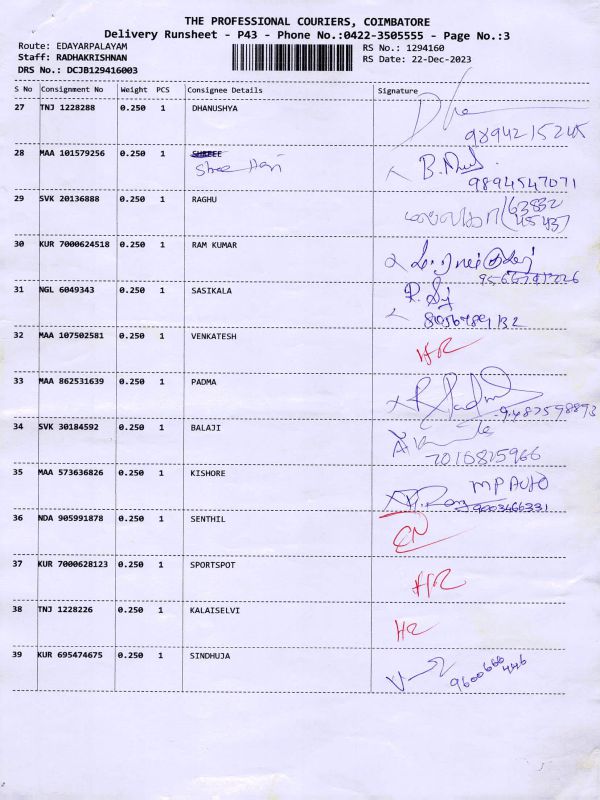 THE PROFESSIONAL COURIERS, COIMBATORE
Delivery Runsheet - P43 - Phone No.:0422-3505555 - Page No.:3
Route: EDAYARPALAYAM
RS No.: 1294160
Staff: RADHAKRISHNAN
RS Date: 22-Dec-2023
DRS No.: DCJB129416003
S No Consignment No Weight PCS Consignee Details Signature
27 TNJ 1228288 0.250 1 DHANUSHYA
9894215245
28 MAA 101579256 0.250 1 SHREE
Shree Hari
9894547071
29 SVK 20136888 0.250 1 RAGHU
30 KUR 7000624518 0.250 1 RAM KUMAR
31 NGL 6049343 0.250 1 SASIKALA
32 MAA 107502581 0.250 1 VENKATESH
HR
33 MAA 862531639 0.250 1 PADMA
34 SVK 30184592 0.250 1 BALAJI
7010825966
35 MAA 573636826 0.250 1 KISHORE
MP AUTO
9003466331
36 NDA 905991878 0.250 1 SENTHIL
37 KUR 7000628123 0.250 1 SPORTSPOT
HR
38 TNJ 1228226 0.250 1 KALAISELVI
39 KUR 695474675 0.250 1 SINDHUJA
9600666446